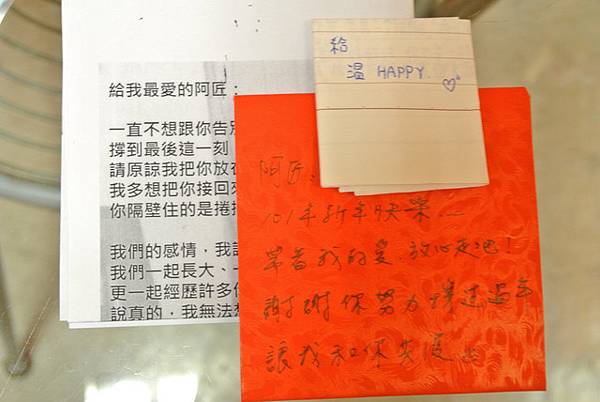 給我最愛的阿匠：
一直不想跟你告別
撐到最後這一刻
請原諒我把你放在
我多想把你接回
你隔壁住的是捲
我們的感情，我
我們一起長大、一
更一起經歷許多
說真的，我無法想
給
溫 HAPPY
阿匠：
101年新年快樂...
帶著我的愛.放心走吧！
謝謝你努力撐過過年
讓我和你共度